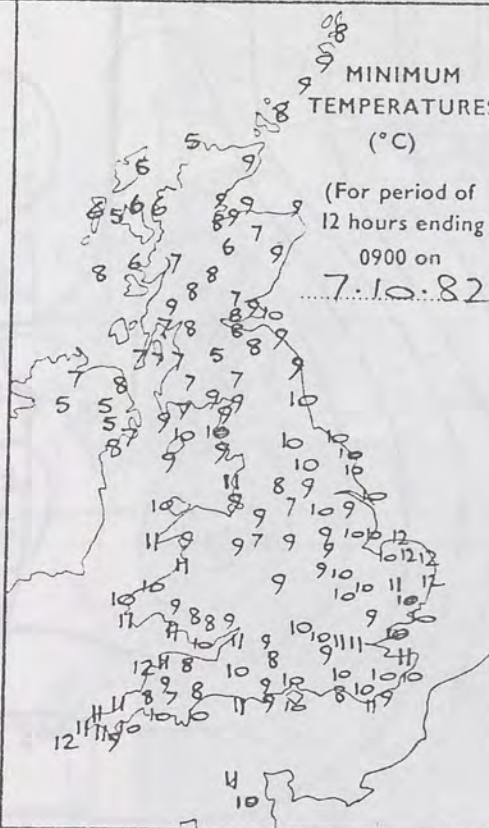 MINIMUM
TEMPERATURES
(°C)
(For period of
12 hours ending
0900 on
7.10.82
8
9
9
8
5
9
6
8 5 6 6
9 9 9
8
7
6
9
6 7
8
8
8
9
7 9
8 10
7 8
8
9
7 7 7
5
8
9
7
8
7
7
5
5
9
9
10
5
7
9
10
10
8
9
10
10
10
10
11
9
8
9
10
10
9
7
10
9
11
9
9
7
9
9
10 10
12
10
12
12
11
9
9
10
11
12
10
10
10
10
10
9
9
11
11
8
8
9
10
11
10
10
11 11
10
9
9
11
12
11
8
8
10
10
10
10
10
9
8
7
8
9
10
8
10
9
11
10
10
11
9
10
11
11
12
11
11
9
10
11
10